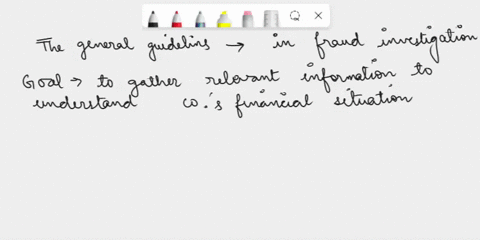 The general guidelins → in fraud investigation
Goal → to gather relevant information to
understand co.'s financial situation